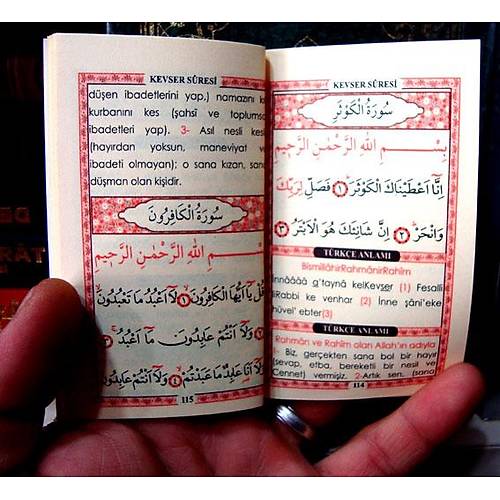 KEVSER SÛRESİ
سُورَةُ الْكَوْثَرِ
بِسْمِ اللهِ الرَّحْمٰنِ الرَّحِيمِ
اِنَّٓا اَعْطَيْنَاكَ الْكَوْثَرَ ﴿١﴾ فَصَلِّ لِرَبِّكَ
وَانْحَرْ ﴿٢﴾ اِنَّ شَانِئَكَ هُوَ الْاَبْتَرُ ﴿٣﴾
TÜRKÇE ANLAMI
BismillâhirRahmânirRahîm
İnnââââ g'taynâ kelKevser (1) Fesalli
liRabbi ke venhar (2) İnne şâni'eke
hüvel' ebter(3)
TÜRKÇE ANLAMI
Rahmân ve Rahîm olan Allah'ın adıyla
1- Biz, gerçekten sana bol bir hayır
(sevap, etba, bereketli bir nesil ve
Cennet) vermişiz. 2-Artık sen, (sana
114
KEVSER SÛRESİ
düşen ibadetlerini yap,) namazını kıl
kurbanını kes (şahsî ve toplumsal
ibadetleri yap). 3- Asıl nesli kesik
(hayırdan yoksun, maneviyat ve
ibadeti olmayan); o sana kızan, sana
düşman olan kişidir.
سُورَةُ الْكَافِرُونَ
بِسْمِ اللهِ الرَّحْمٰنِ الرَّحِيمِ
قُلْ يَٓا اَيُّهَا الْكَافِرُونَ ﴿١﴾ لَٓا اَعْبُدُ مَا تَعْبُدُونَ
﴿٢﴾ وَلَٓا اَنْتُمْ عَابِدُونَ مَٓا اَعْبُدُ ﴿٣﴾
وَلَٓا اَنَا عَابِدٌ مَا عَبَدْتُمْ ﴿٤﴾ وَلَٓا اَنْتُمْ عَابِدُونَ
115